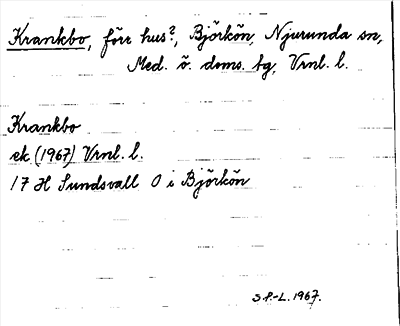 Krankbo, förr hus?, Björkön, Njurunda sn,
Med. ö. doms. tg, Vrnl. l.
Krankbo
ek (1967) Vrnl. l.
17 H Sundsvall O i Björkön
S P.-L. 1967.